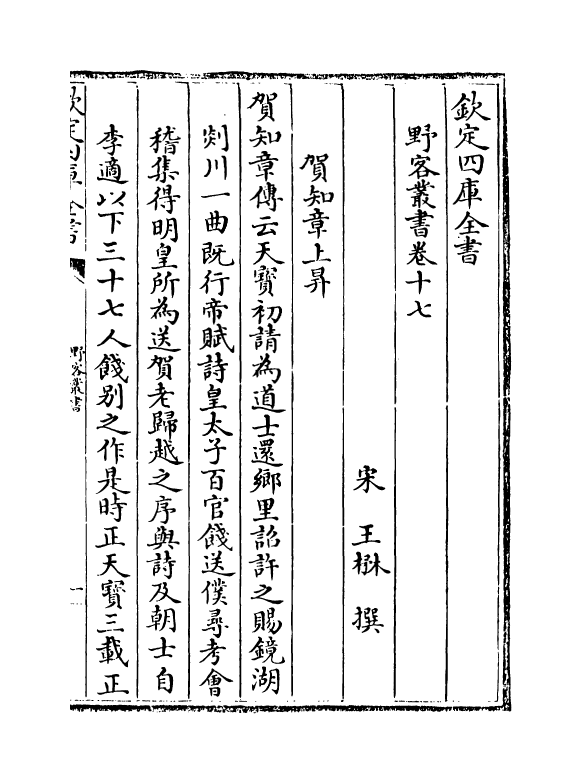 欽定四庫全書
野客叢書卷十七
宋　王楙　撰
賀知章上昇
賀知章傳云天寶初請為道士還鄉里詔許之賜鏡湖
剡川一曲既行帝賦詩皇太子百官餞送僕尋考會
稽集得明皇所為送賀老歸越之序與詩及朝士自
李適以下三十七人餞别之作是時正天寶三載正
欽定四庫全書
野客叢書
一